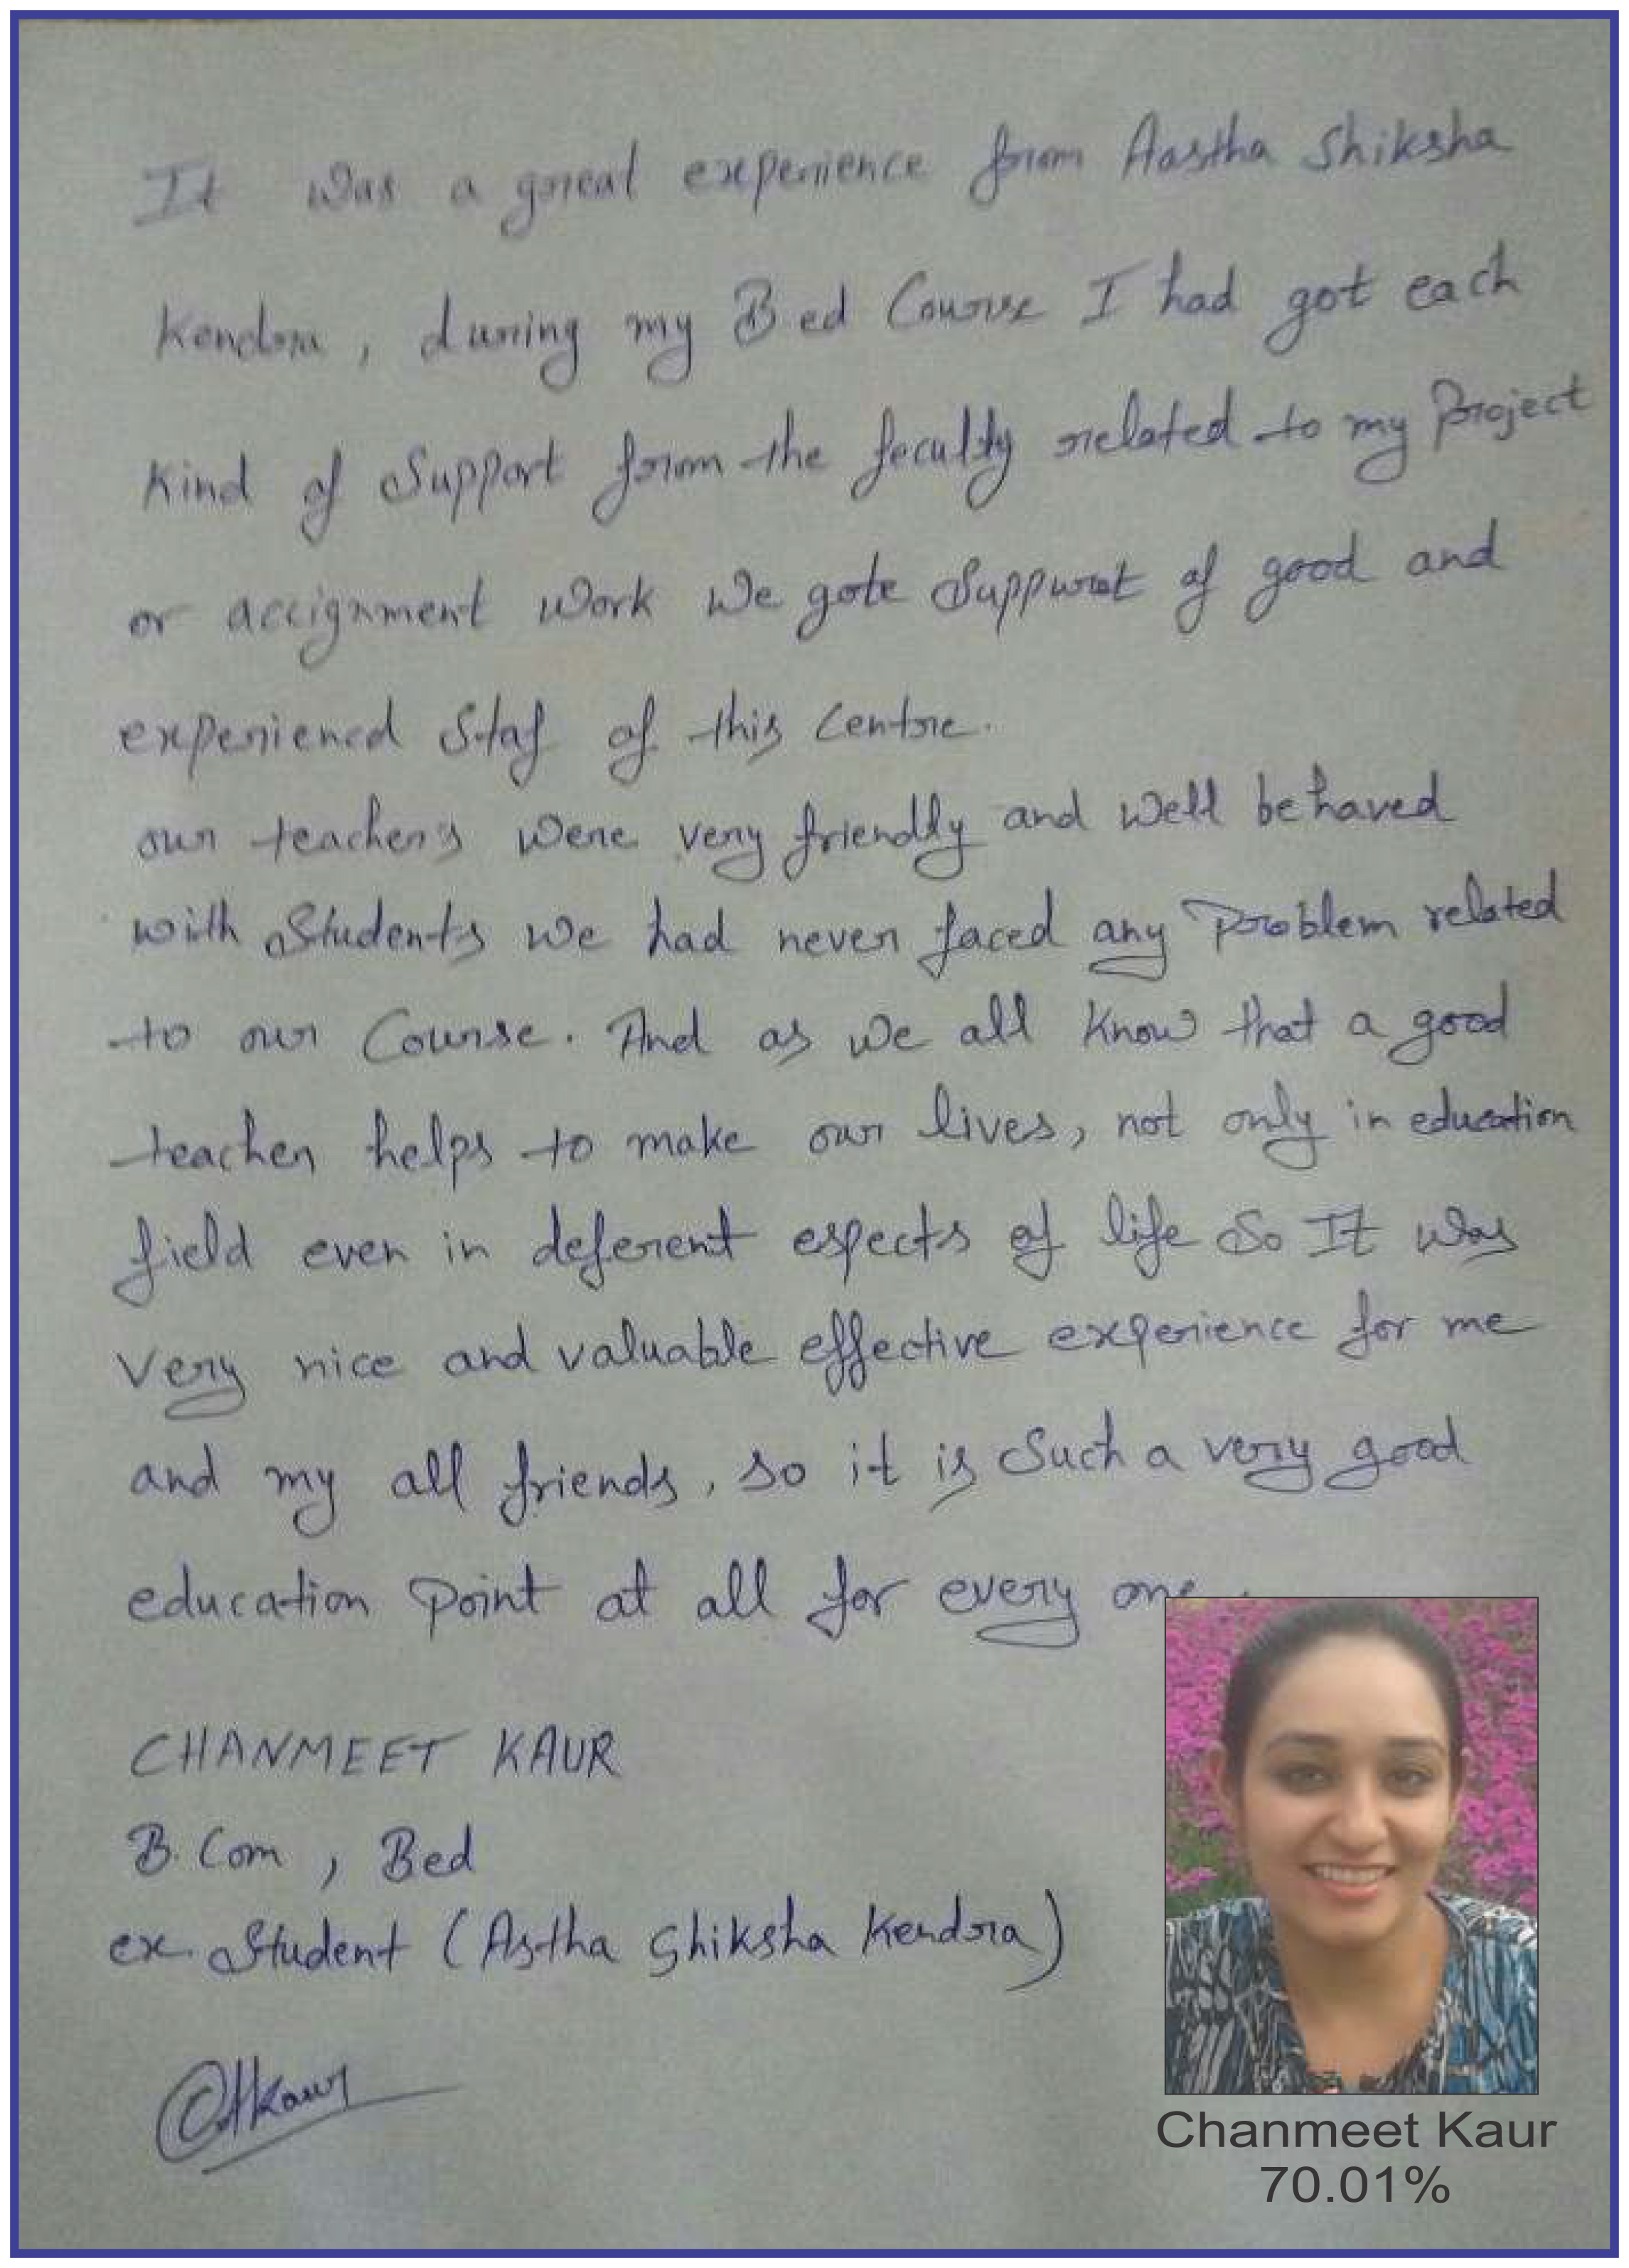 It was a great experience from Aastha Shiksha
Kendra, during my Bed Course I had got each
kind of Support from the feculty related to my Project
or accignment work we gote Suppurat of good and
experiencd Staf of this Centre.
our teacher's were very friendly and well behaved
with Students we had never faced any Problem related
to our Course. And as we all know that a good
teacher helps to make our lives, not only in education
field even in deferent espects of life So It was
very nice and valuable effective experience for me
and my all friends, so it is Such a very good
education Point at all for every one.
CHANMEET KAUR
B. Com, Bed
ex. Student (Astha Shiksha Kendra)
Chanmeet Kaur
70.01%